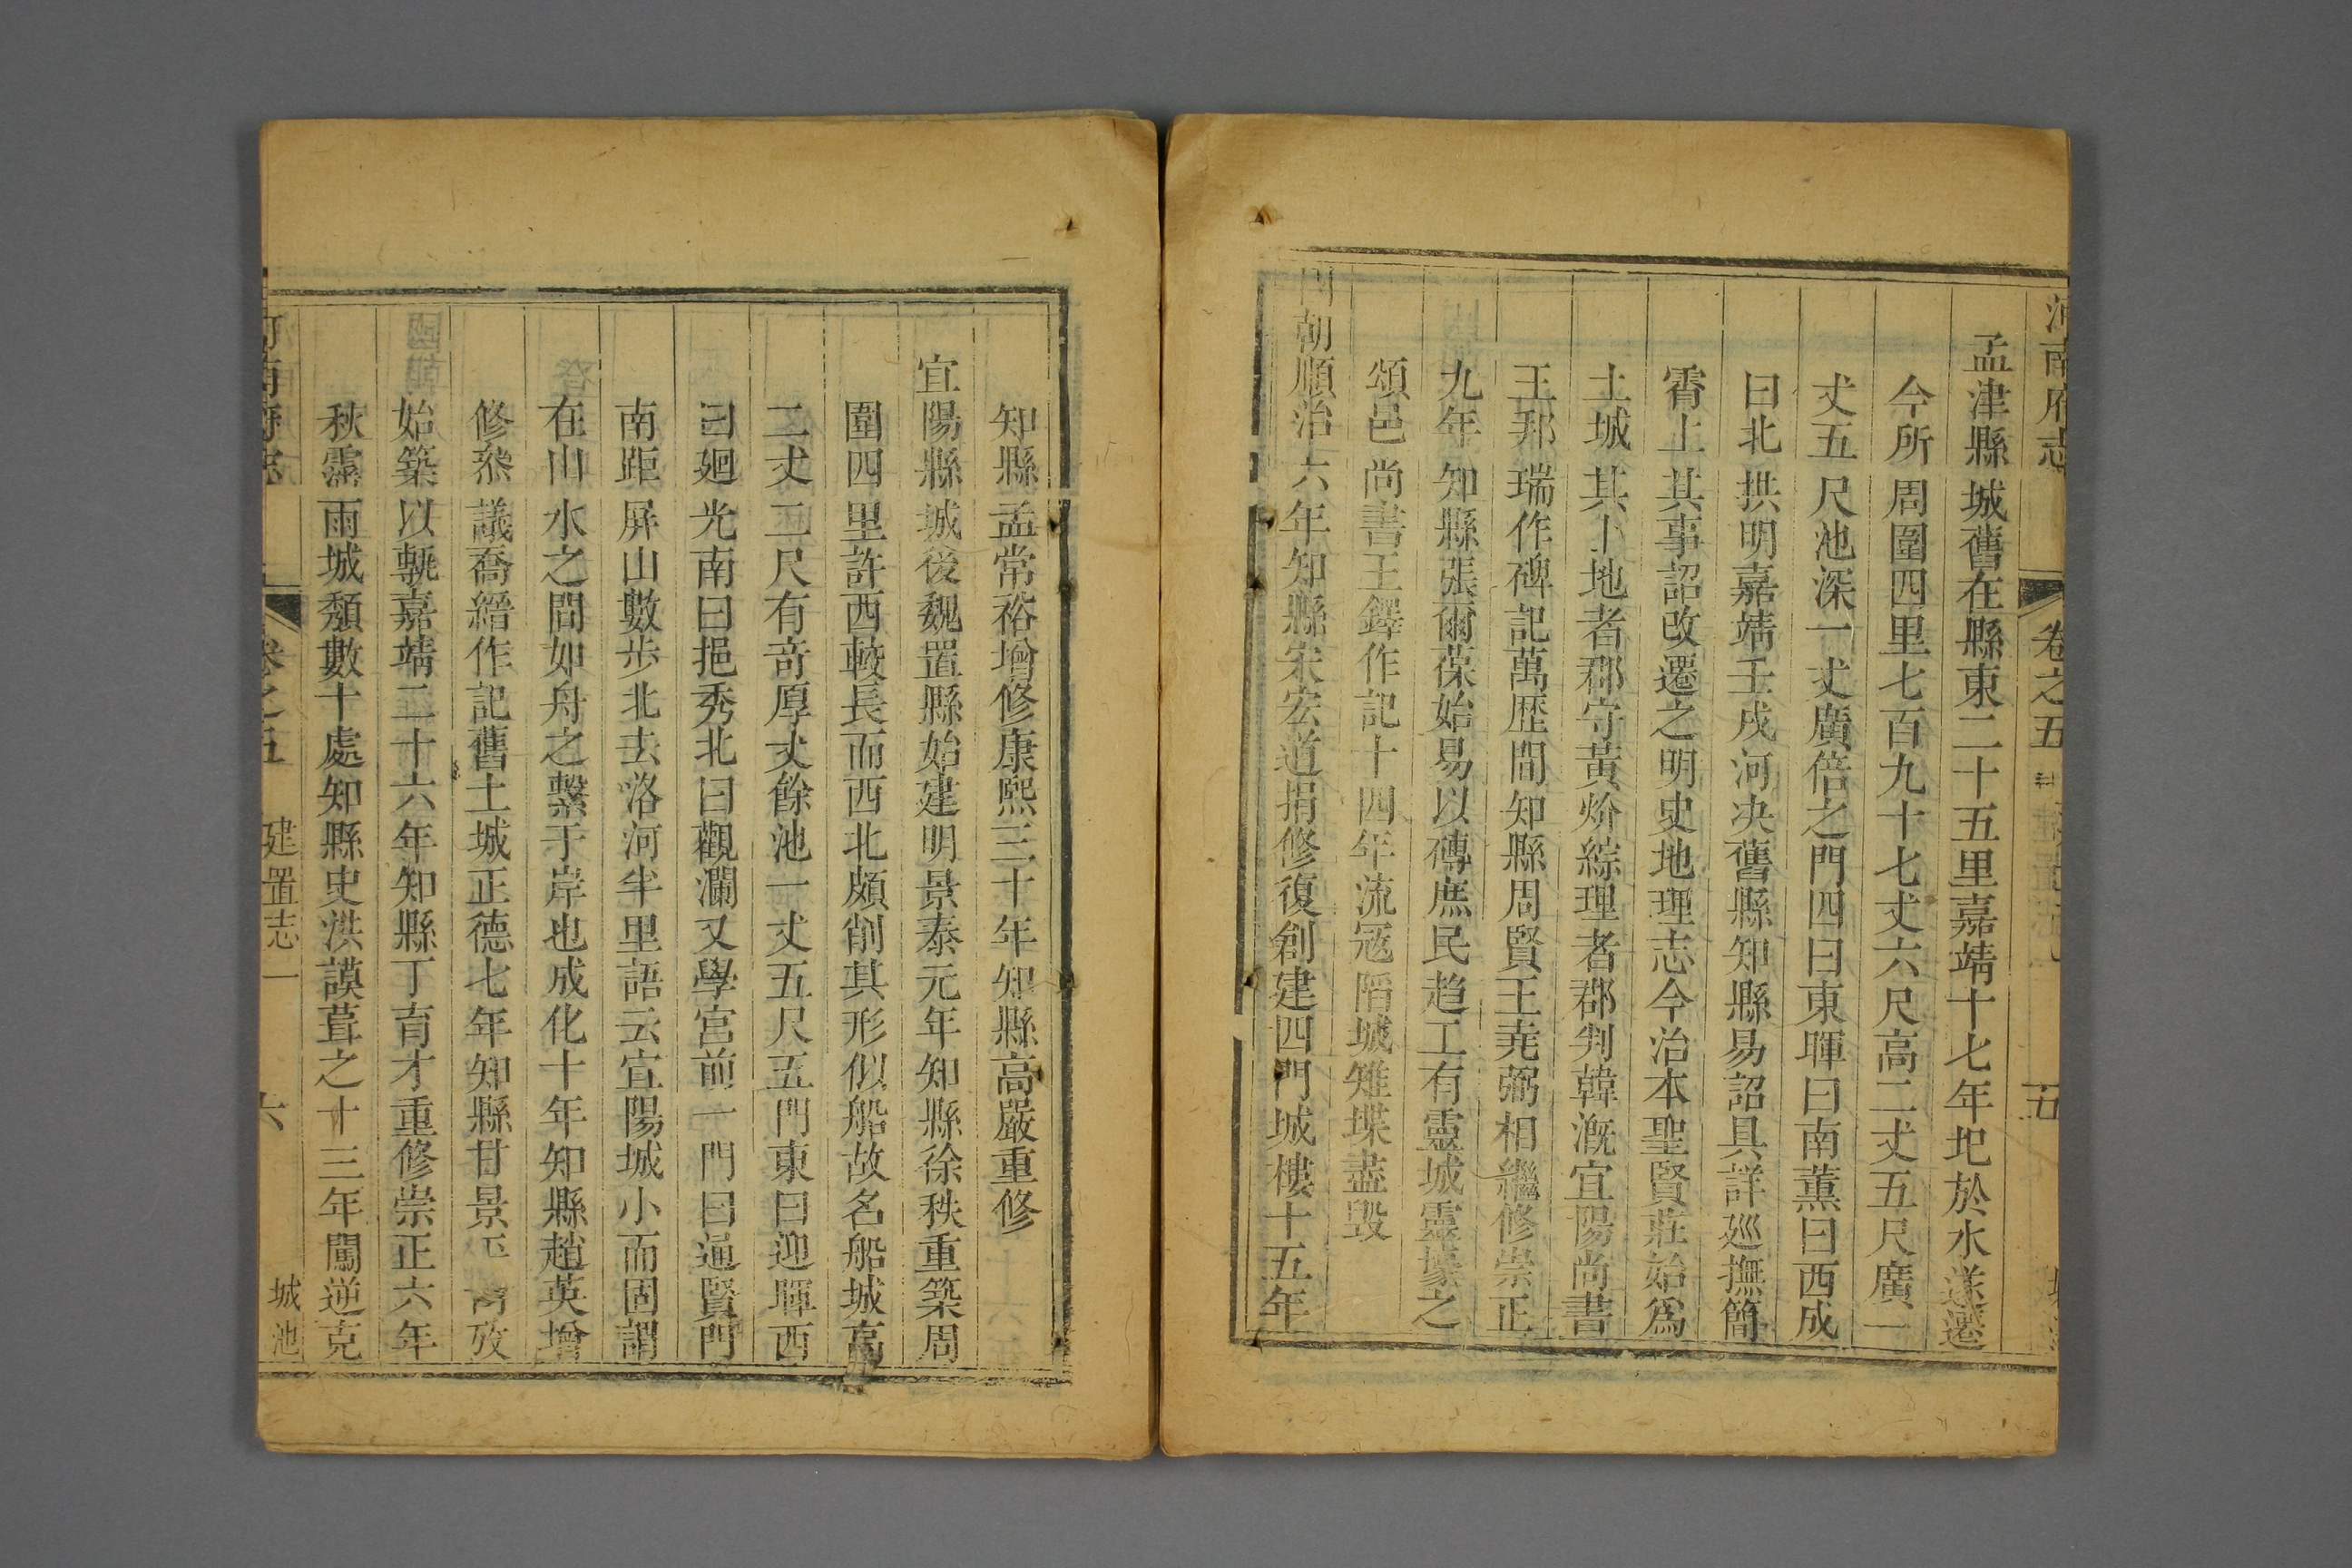 河南府志 卷之五 五
孟津縣城舊在縣東二十五里嘉靖十七年圯於水遂遷
今所周圍四里七百九十七丈六尺高二丈五尺廣一
丈五尺池深一丈廣倍之門四曰東暉曰南薰曰西成
曰北拱明嘉靖壬戌河决舊縣知縣易詔具詳廵撫簡
霄上其事詔改遷之明史地理志今治本聖賢莊始爲
土城其卜地者郡守黃炌綜理者郡判韓漑宜陽尚書
王邦瑞作碑記萬歴間知縣周賢王堯弼相繼修崇正
九年知縣張爾葆始易以磚庶民趋工有靈城靈壕之
頌邑尚書王鐸作記十四年流寇陷城雉堞盡毁
朝順治六年知縣宋宏道捐修復創建四門城樓十五年
知縣孟常裕增修康熙三十年知縣高嚴重修
宜陽縣城後魏置縣始建明景泰元年知縣徐秩重築周
圍四里許西較長而西北頗削其形似船故名船城高
二丈二尺有竒厚丈餘池一丈五尺五門東曰迎暉西
曰廻光南曰挹秀北曰觀瀾又學宮前一門曰通賢門
南距屏山數步北去洛河半里語云宜陽城小而固謂
在山水之間如舟之繫于岸也成化十年知縣趙英增
修叅議喬縉作記舊土城正德七年知縣甘景玉 攷
始築以甎嘉靖二十六年知縣丁育才重修崇正六年
秋霪雨城頽數十處知縣史洪謨葺之十三年闖逆克
河南府志 卷之五 建置志一 城池 六